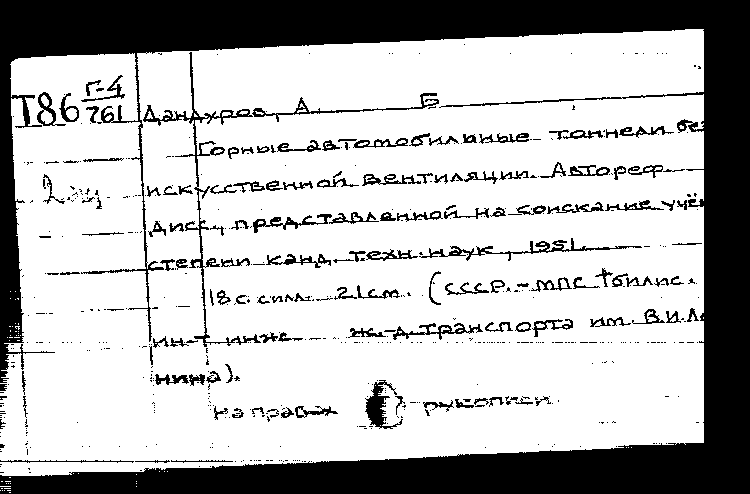 Т86 Г-4/761
Дандуров, А. Б
Горные автомобильные тоннели без
2 экз
искусственной вентиляции. Автореф.
дисс., представленной на соискание учён
степени канд. техн. наук, 1951.
18 с. с илл. 21 см. (СССР. - МПС Тбилис.
ин-т инж. ж.-д. транспорта им. В.И. Ле
нина).
на правах рукописи